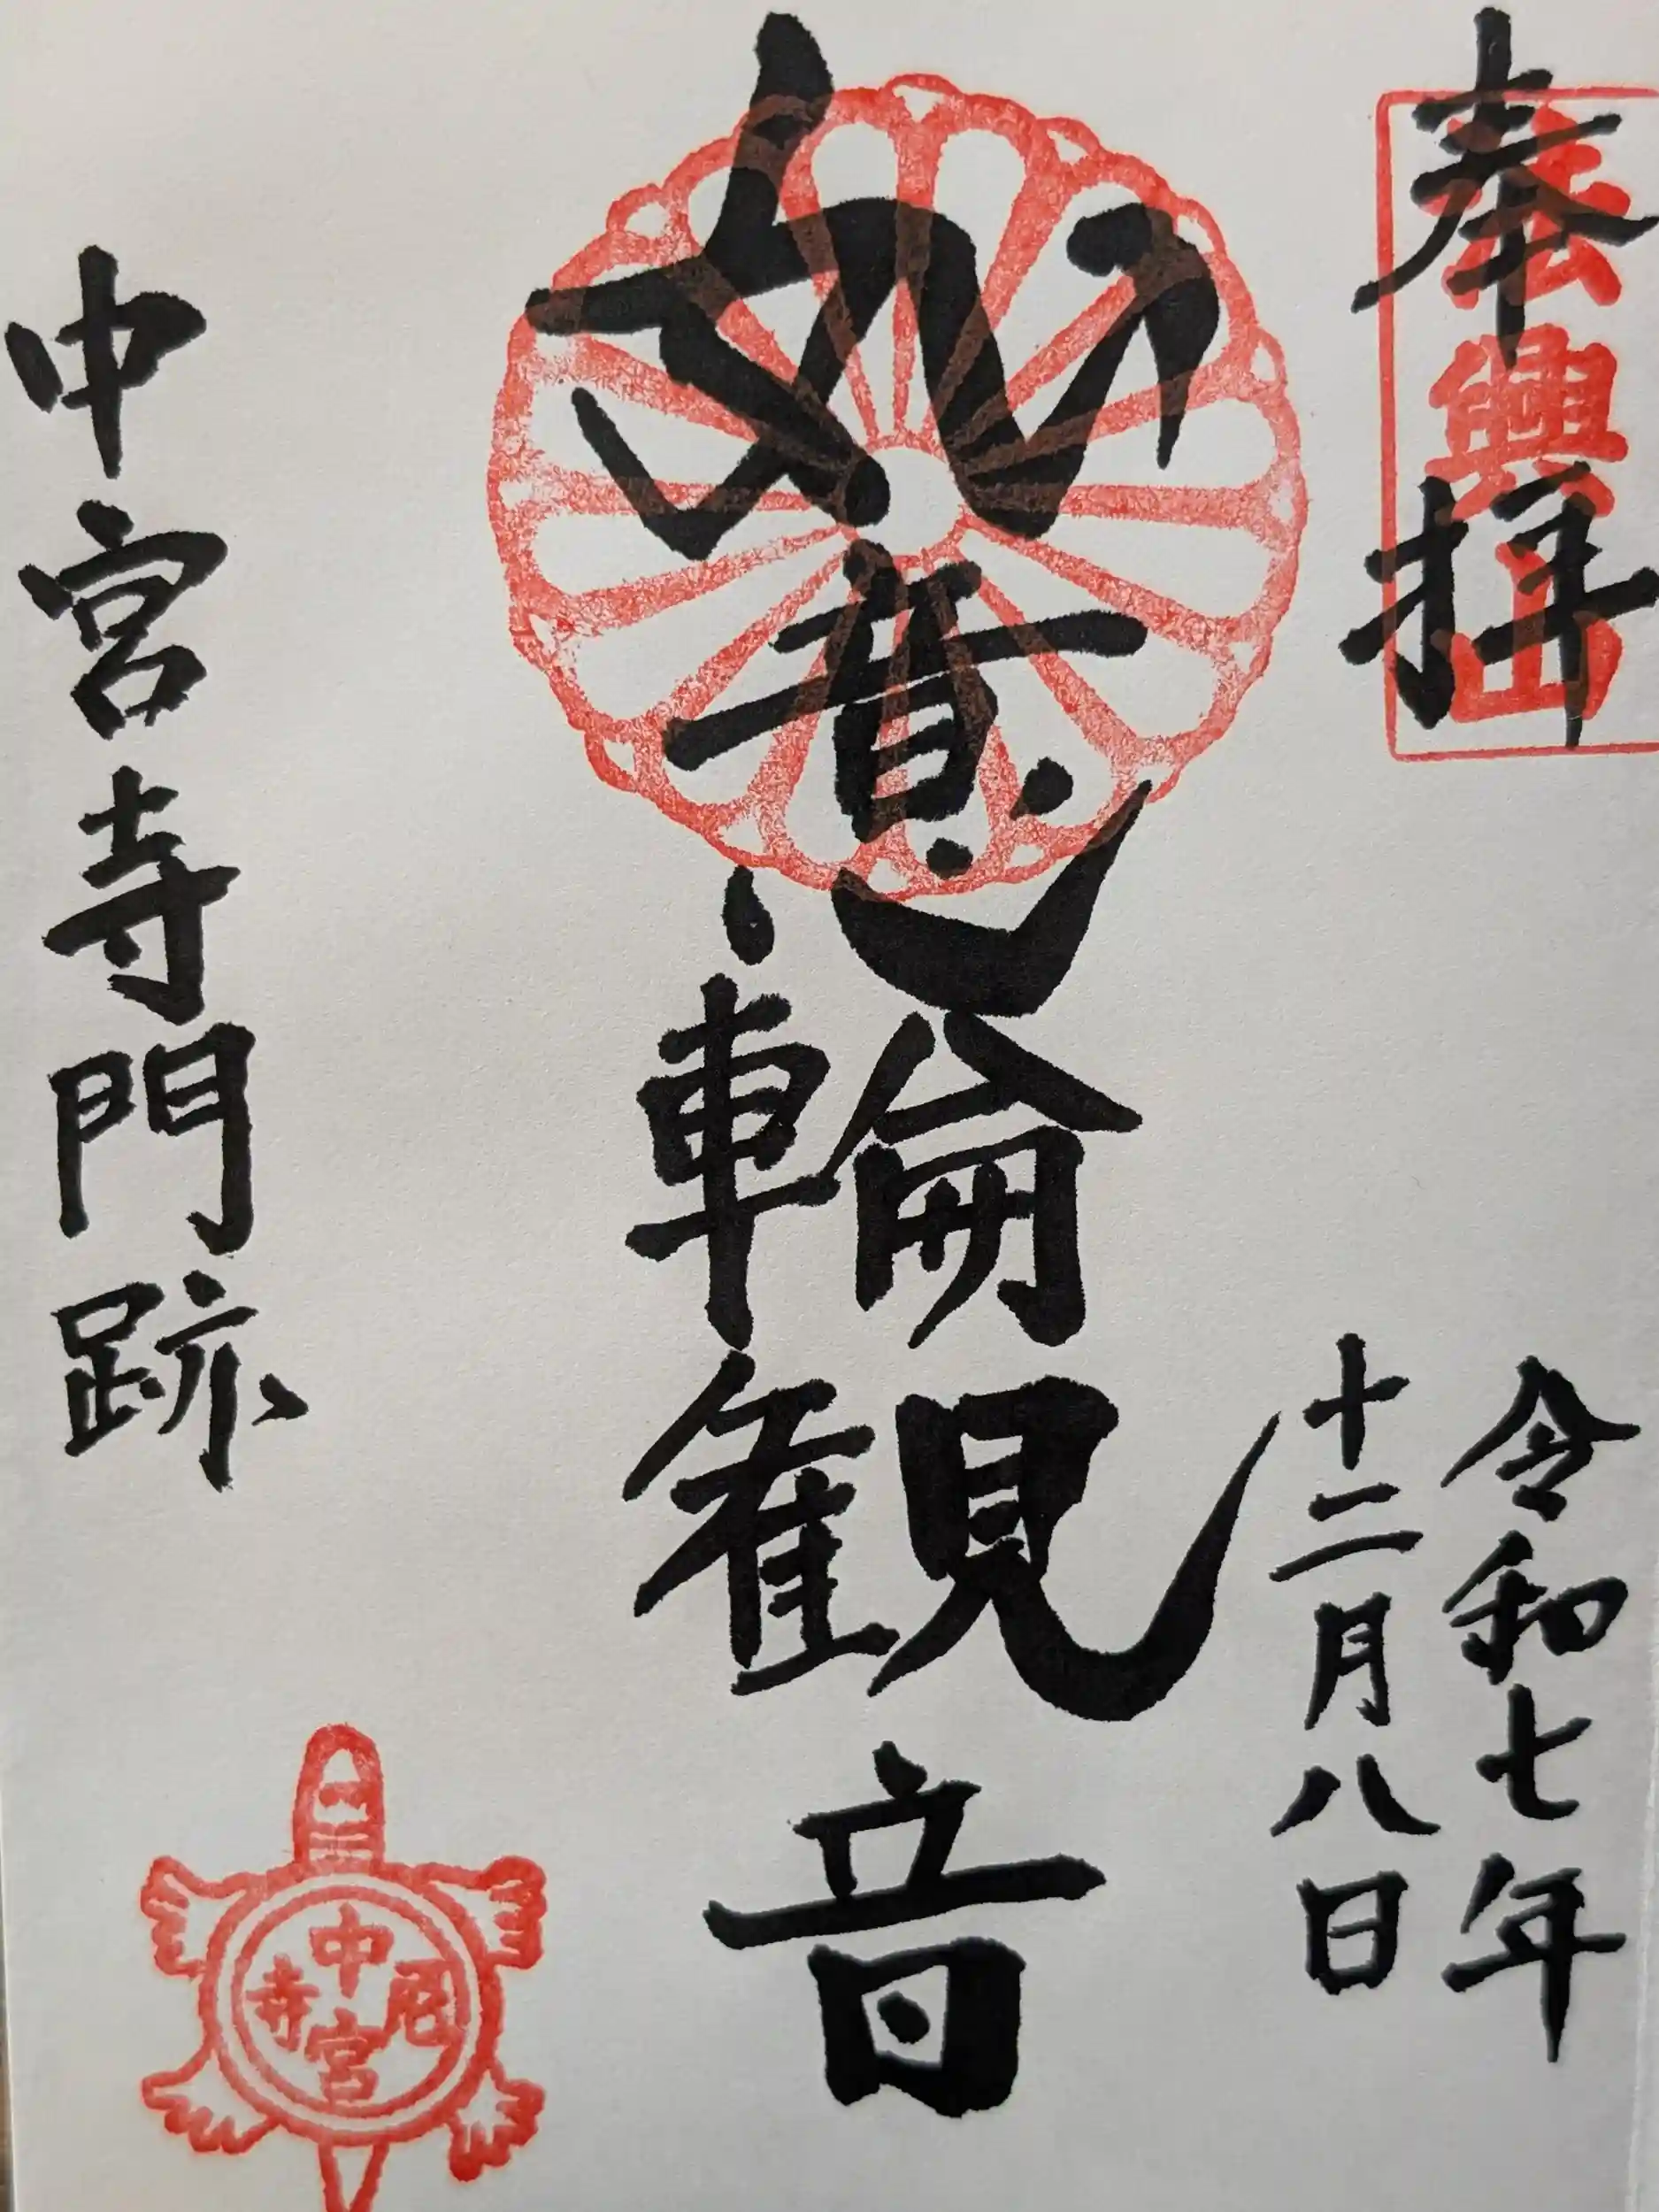 奉拝
法興山
令和七年
十二月八日
如意輪観音
中宮寺門跡
中宮
寺